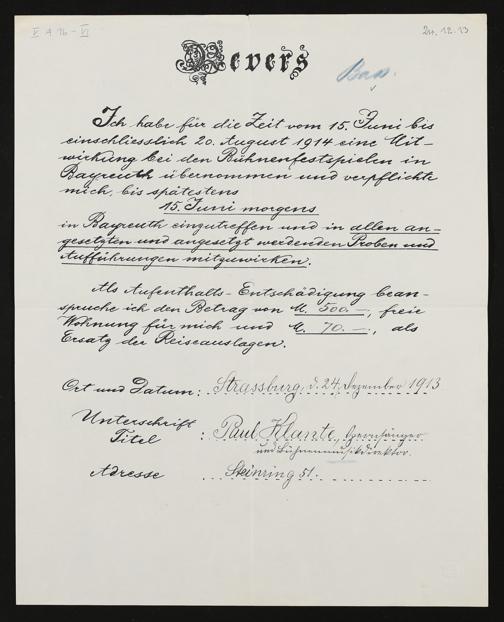 V A 16 - VI
24.12.13
Revers
Bass.
Ich habe für die Zeit vom 15. Juni bis
einschliesslich 20. August 1914 eine Mit-
wirkung bei den Bühnenfestspielen in
Bayreuth übernommen und verpflichte
mich, bis spätestens
15. Juni morgens
in Bayreuth einzutreffen und in allen an-
gesetzten und angesetzt werdenden Proben und
Aufführungen mitzuwirken.
Als Aufenthalts-Entschädigung bean-
spruche ich den Betrag von M. 500.—, freie
Wohnung für mich und M. 70.—, als
Ersatz der Reiseauslagen.
Ort und Datum: Strassburg, d. 24. Dezember 1913
Unterschrift
Titel : Paul Klante, Opernsänger
und Bühnenmusikdirektor.
Adresse Steinring 51.